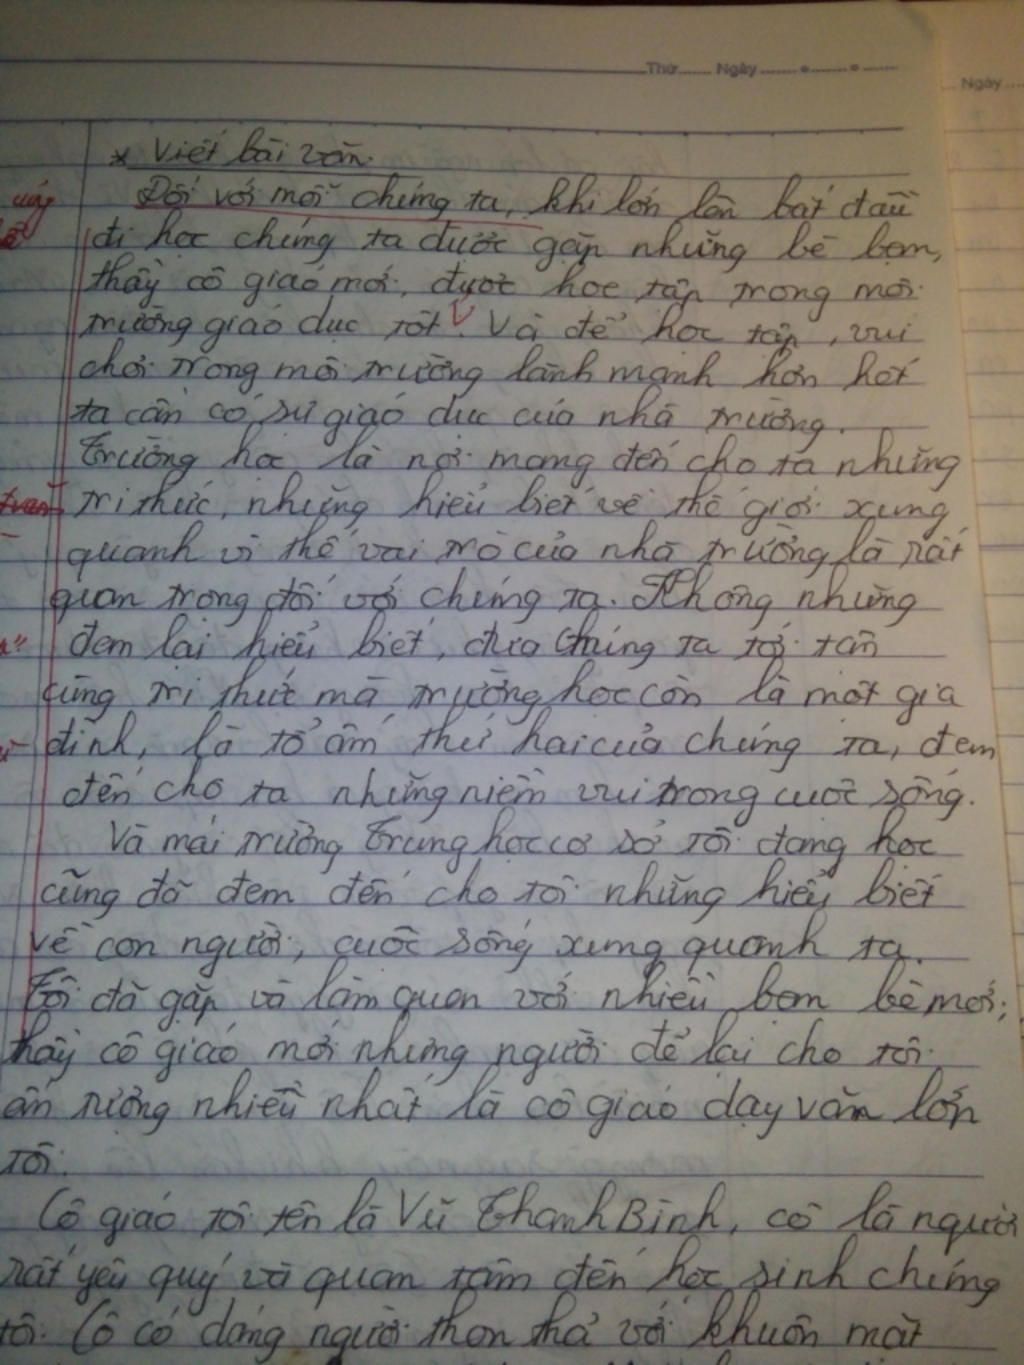 Thứ...... Ngày.......•.......•......
Ngày....
* Viết bài văn.
Đối với mỗi chúng ta, khi lớn lên bắt đầu
đi học chúng ta được gặp những bè bạn,
thầy cô giáo mới, được học tập trong môi
trường giáo dục tốt. Và để học tập, vui
chơi trong môi trường lành mạnh hơn hết
ta cần có sự giáo dục của nhà trường.
Trường học là nơi mang đến cho ta những
tri thức, những hiểu biết về thế giới xung
quanh vì thế vai trò của nhà trường là rất
quan trọng đối với chúng ta. Không những
đem lại hiểu biết, đưa chúng ta tới tận
cùng tri thức mà trường học còn là một gia
đình, là tổ ấm thứ hai của chúng ta, đem
đến cho ta những niềm vui trong cuộc sống.
Và mái trường Trung học cơ sở tôi đang học
cũng đã đem đến cho tôi những hiểu biết
về con người, cuộc sống xung quanh ta.
Tôi đã gặp và làm quen với nhiều bạn bè mới,
thầy cô giáo mới nhưng người để lại cho tôi
ấn tượng nhiều nhất là cô giáo dạy văn lớp
tôi.
Cô giáo tôi tên là Vũ Thanh Bình, cô là người
rất yêu quý và quan tâm đến học sinh chúng
tôi. Cô có dáng người thon thả với khuôn mặt